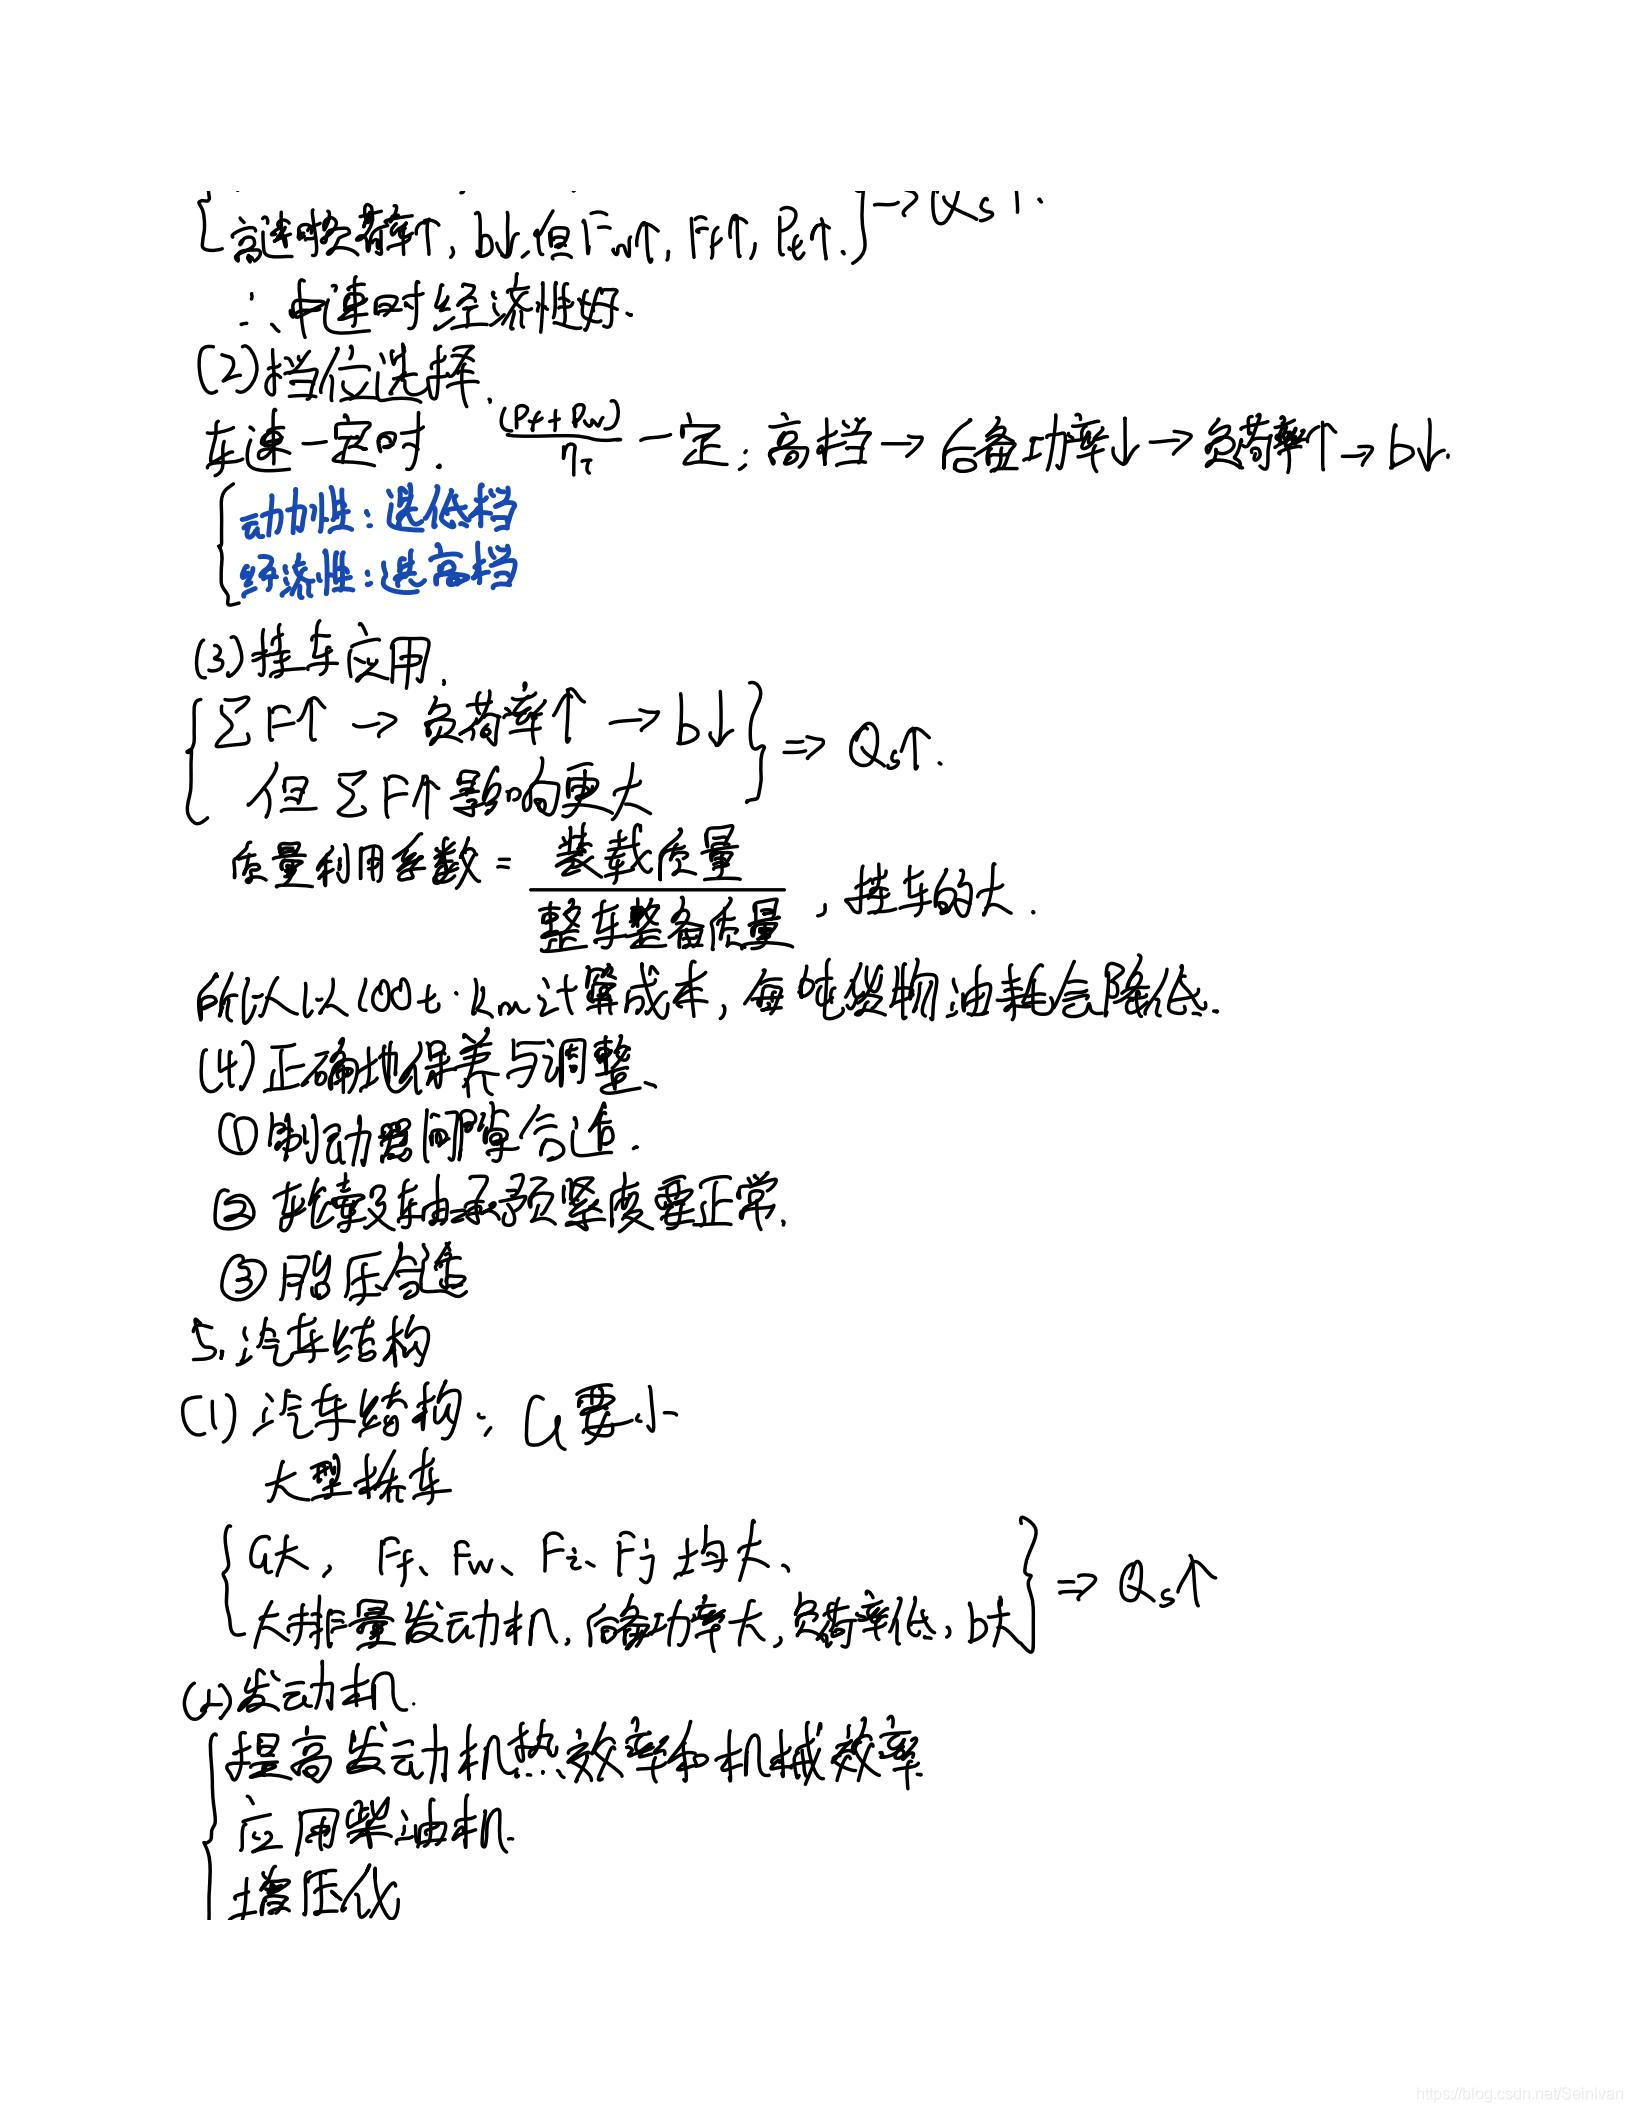 高速时负荷率↑, b↓, 但Fw↑, Ff↑, Pe↑. → Qs↑.
∴ 中速时经济性好.
(2)挡位选择.
车速一定时. (Pf+Pw)/ητ 一定; 高挡→后备功率↓→负荷率↑→b↓.
动力性: 选低档
经济性: 选高档
(3)挂车应用.
ΣF↑ → 负荷率↑ → b↓
但ΣF↑影响更大 ⇒ Qs↑.
质量利用系数 = 装载质量/整车整备质量, 挂车的大.
所以以100t·km计算成本, 每吨货物油耗会降低.
(4)正确地保养与调整、
①制动器间隙合适.
②轮毂轴承预紧度要正常.
③胎压合适
5.汽车结构
(1)汽车结构: G要小
大型轿车
G大, Ff、Fw、Fi、Fj均大、
大排量发动机, 后备功率大, 负荷率低, b大 ⇒ Qs↑
(2)发动机.
提高发动机热效率和机械效率
应用柴油机
增压化
https://blog.csdn.net/SeinIvan